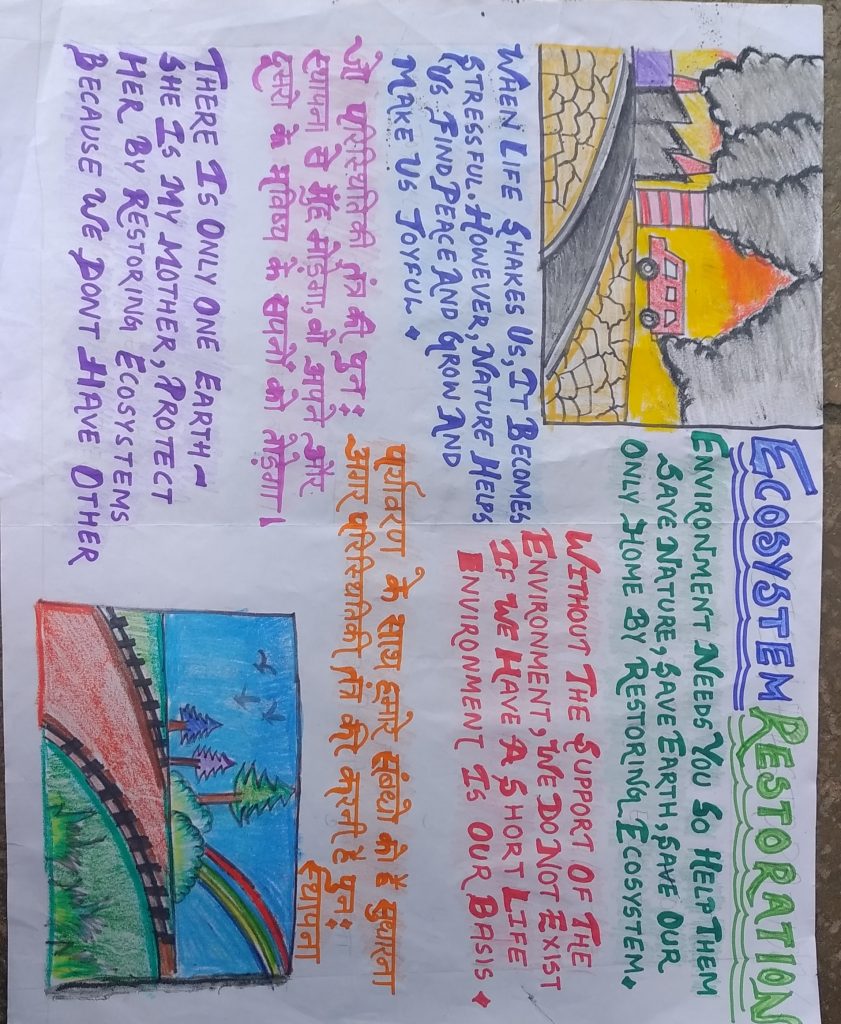 ECOSYSTEM RESTORATION
ENVIRONMENT NEEDS YOU SO HELP THEM
SAVE NATURE, SAVE EARTH, SAVE OUR
ONLY HOME BY RESTORING ECOSYSTEM.
WHEN LIFE SHAKES US, IT BECOMES
STRESSFUL. HOWEVER, NATURE HELPS
US FIND PEACE AND GROW AND
MAKE US JOYFUL.
WITHOUT THE SUPPORT OF THE
ENVIRONMENT, WE DO NOT EXIST
IF WE HAVE A SHORT LIFE
ENVIRONMENT IS OUR BASIS.
जो परिस्थितिकी तंत्र की पुनः
स्थापना से मुंह मोड़ेगा, वो अपने और
दूसरो के भविष्य के सपनों को तोड़ेगा।
पर्यावरण के साथ हमारे संबंधो को है सुधारना
अगर परिस्थितिकी तंत्र की करनी है पुनः
स्थापना
THERE IS ONLY ONE EARTH -
SHE IS MY MOTHER, PROTECT
HER BY RESTORING ECOSYSTEMS
BECAUSE WE DONT HAVE OTHER